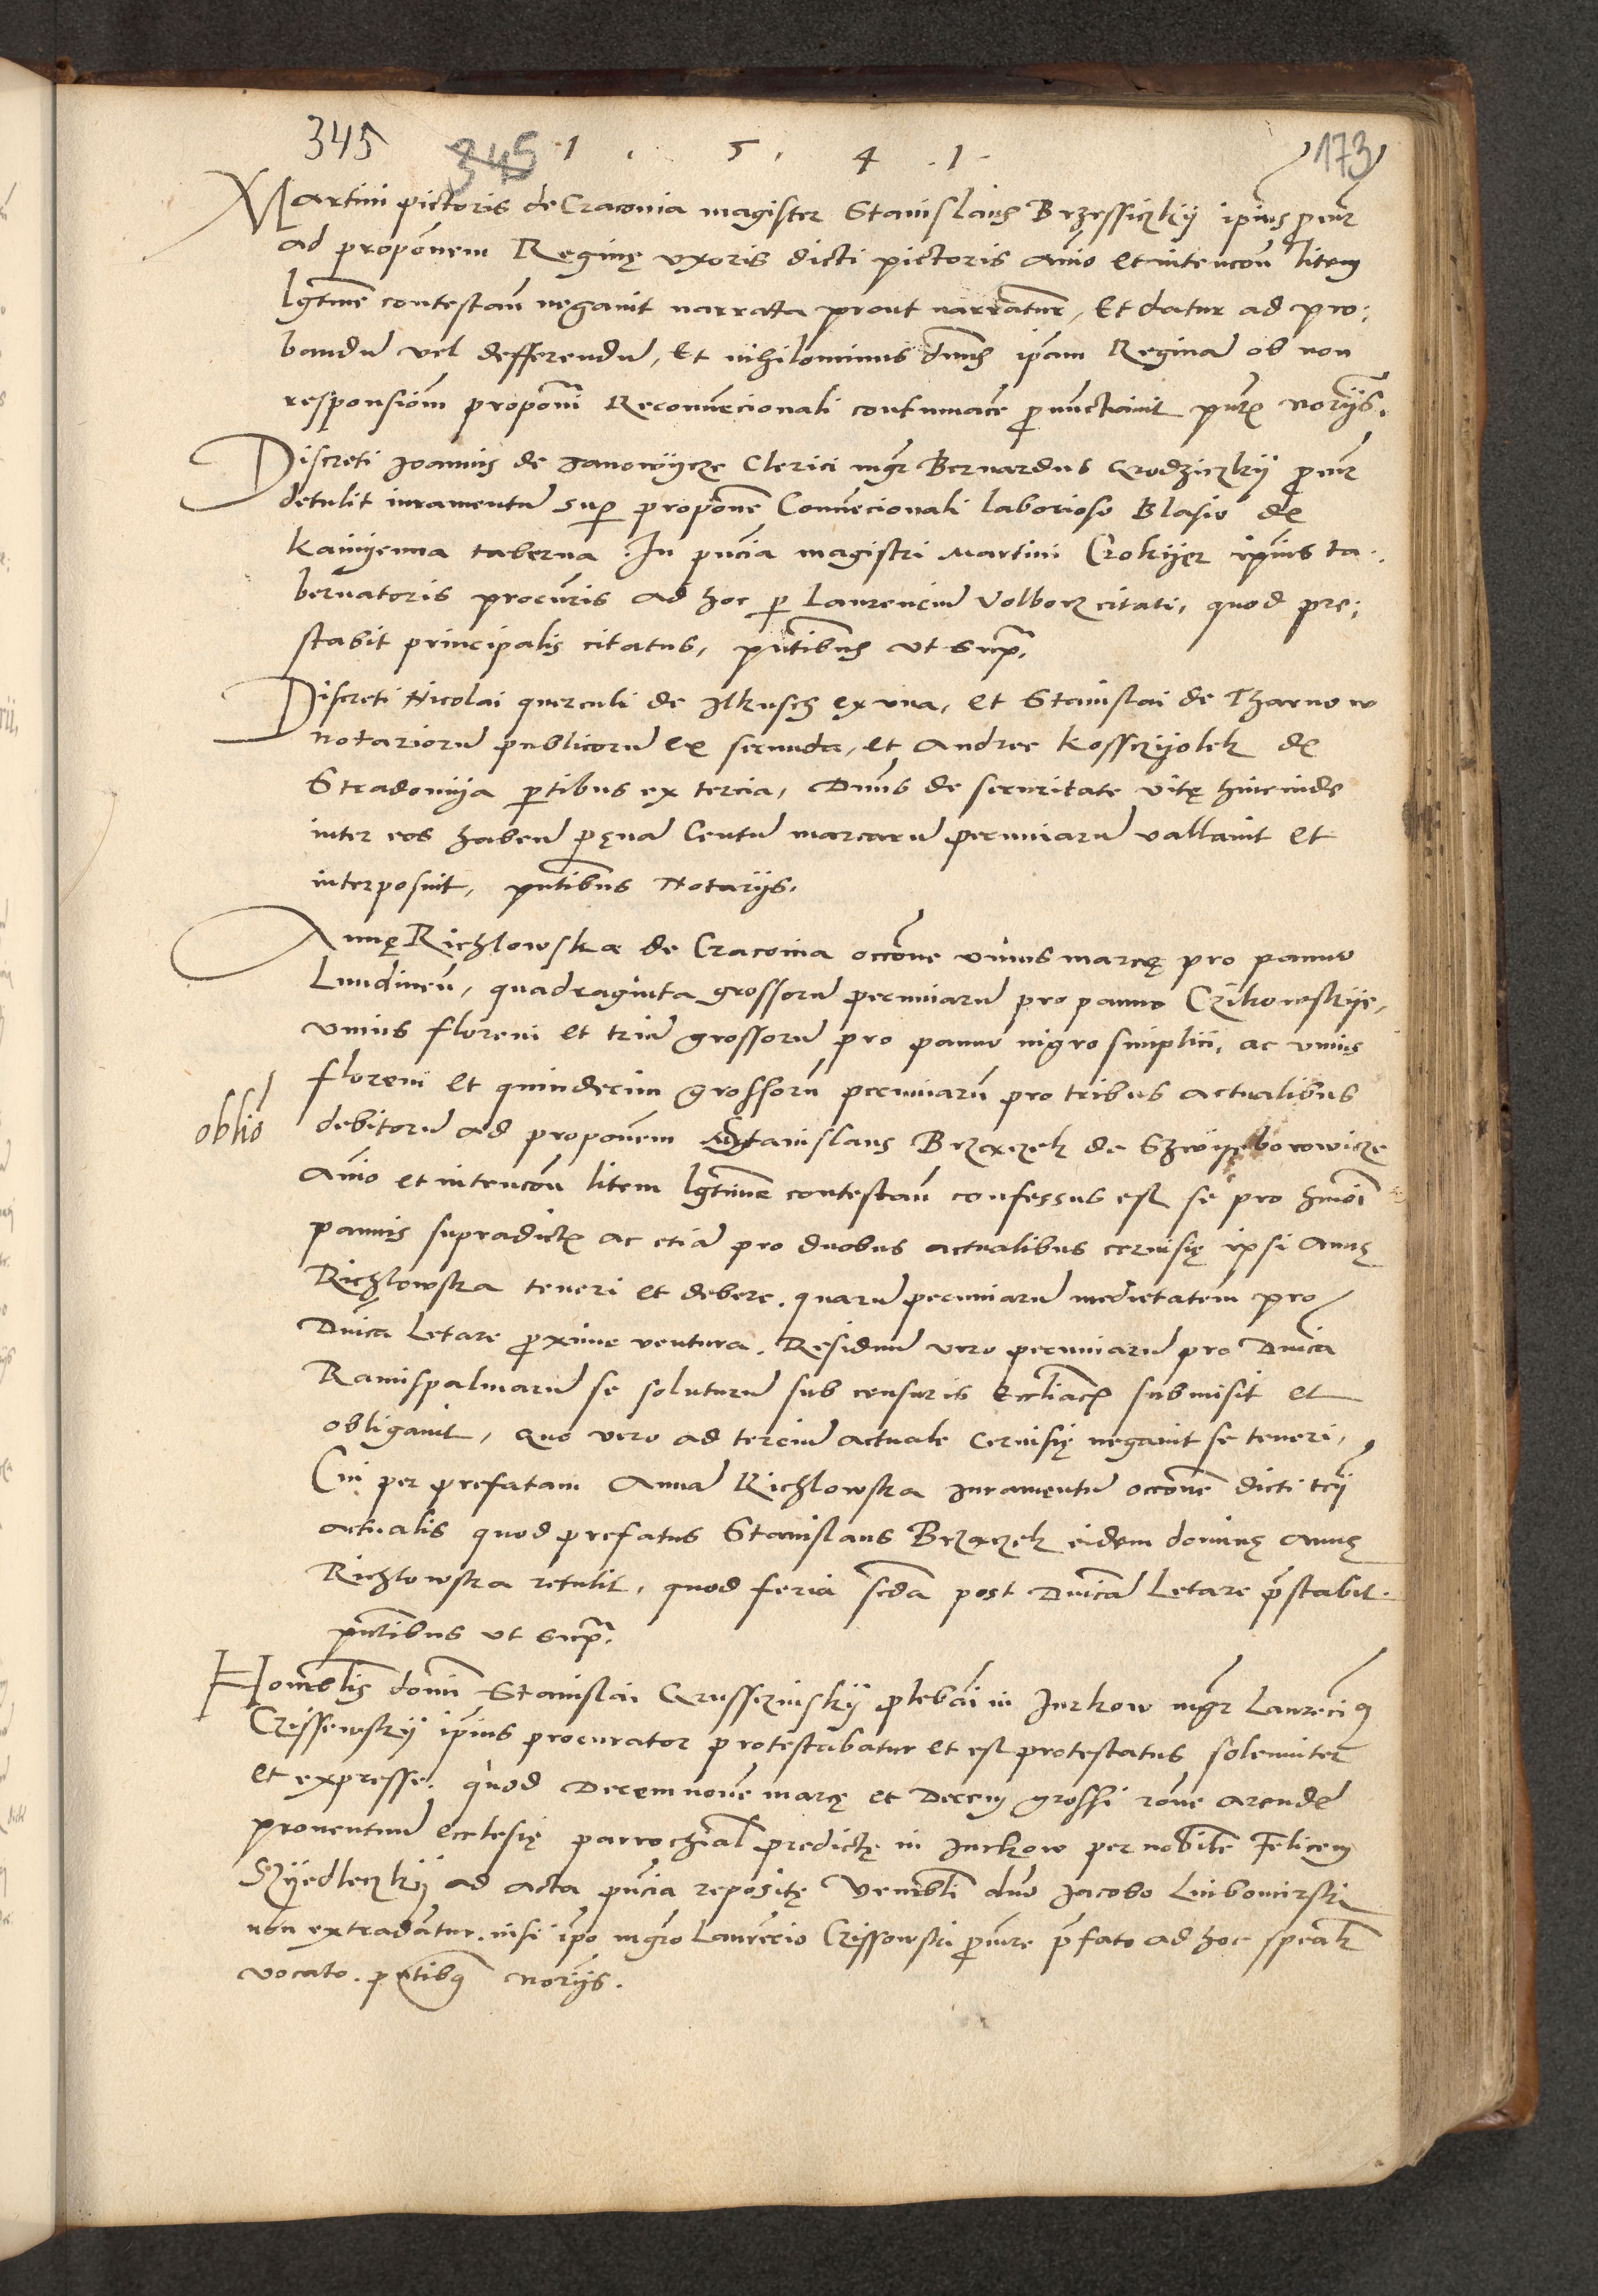 345 345 1 . 5 . 4 . 1 . 173
Martini pictoris de Cracovia magister Stanislaus Brzessiczkÿ ipius procur
ad proponem Reginę uxoris dicti pictoris aīo et intencōn litem
lgtime contestan̄ negavit narratta prout narrantur, Et datur ad pro;
bandū vel defferendū, Et nihilominus dnus ipam Reginā ob non
responsiōm proponi Reconvencionali contumacē pronunctiavit pntibus norÿs.
Discreti Joannis de Janowÿcze Clerici mgr Bernardus Grodziczkÿ procur
detulit iuramentū sup proponē Convencionali laborioso Blasio de
Kamÿenna taberna In pncia magistri Martini Crokÿer ipius ta-
bernatoris procuris ad hoc p Laurenciū Volborz citati, quod pre;
stabit principalis citatus, pntibus ut supra.
Discreti Nicolai querculi de Ilkusch ex una, et Stanislai de Tharnow
notariorū publicorū ex secunda, et Andree Kossczÿolek de
Stradomÿa ptibus ex tercia, Dnus de securitate vitę hincinde
inter eos habend pęnā Centū marcarū pecuniarū vallavit et
interposuit, pntibus Notarÿs.
Annę Richlowska de Cracovia occōne unius marcę pro panno
Lundinen̄, quadraginta grossorū pecuniarū pro panno Czikowskÿe,
unius floreni et triū grossorū pro panno nigro simplici, ac unius
floreni et quindecim grossorū pecuniarū pro tribus actualibus
oblio debitorū ad proponem Stanislaus Brzaczek de Szwÿeborowicze
aīo et intencōn litem lgtime contestan̄ confessus est se pro hmoi
pannis supradictis ac etiā pro duobus actualibus cervisię ipsi Annę
Richlowska teneri et debere. quarū pecuniarū medietatem pro
Dnica Letare proxime ventura. Residuū vero pecuniarū pro Dnica
Ramispalmarū se soluturū sub censuris eccliacis submisit et
obligavit, Quo vero ad terciū actuale cervisię negavit se teneri,
Cui per prefatam Annā Richlowska Juramentū occōne dicti tcÿ
actualis quod prefatus Stanislaus Brzaczek eidem dominę Annę
Richlowska retulit, quod feria scda post Dnicā Letare pstabit.
pntibus ut supra.
Honorablis domi Stanislai Grusszinskÿ plebani in Jurkow mgr Laurencius
Czissowskÿ ipius procurator protestabatur et est protestatus solenniter
et expresse. quod Decemnovē marcę et Decem grossi rōne arendę
proventuū ecclesię parrochial predictę in Jurkow per nobilē Felicem
Szÿedleczkÿ ad acta pncia repositę Venerabli dno Jacobo Lubomirski
non extradantur. nisi ipo mgro Laurēcio Czissowski procure pfato ad hoc specialr
vocato. pntibus norÿs.